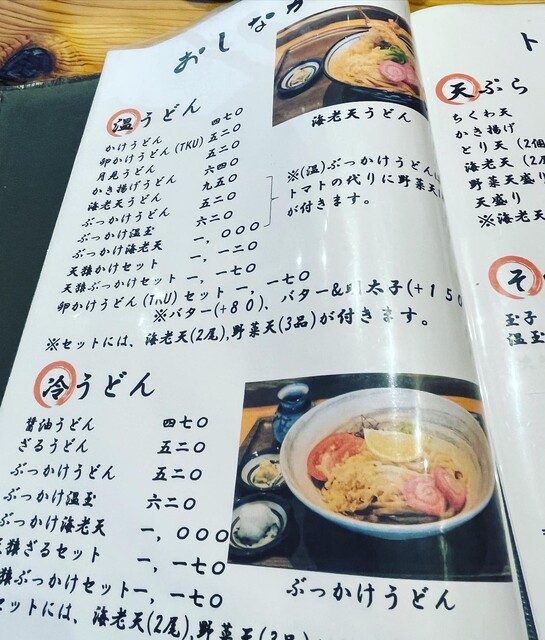 おしなが
温うどん
かけうどん 四七〇
卵かけうどん(TKU) 五二〇
月見うどん 五二〇
かき揚げうどん 六四〇
海老天うどん 九五〇
ぶっかけうどん 五二〇
ぶっかけ温玉 六二〇
ぶっかけ海老天 一,〇〇〇
天猿かけセット 一,一二〇
天猿ぶっかけセット 一,一七〇
卵かけうどん(TKU)セット 一,一七〇
※バター(+80)、バター&明太子(+150
※セットには、海老天(2尾),野菜天(3品)が付きます。
海老天うどん
※(温)ぶっかけうどんに
トマトの代りに野菜天
が付きます。
冷うどん
醤油うどん 四七〇
ざるうどん 五二〇
ぶっかけうどん 五二〇
ぶっかけ温玉 六二〇
ぶっかけ海老天 一,〇〇〇
猿ざるセット 一,一七〇
猿ぶっかけセット 一,一七〇
セットには、海老天(2尾),野菜天(3品)
ぶっかけうどん
ト
天ぷら
ちくわ天
かき揚げ
とり天(2個
海老天(2
野菜天盛
天盛り
※海老天
そ
玉子
温玉